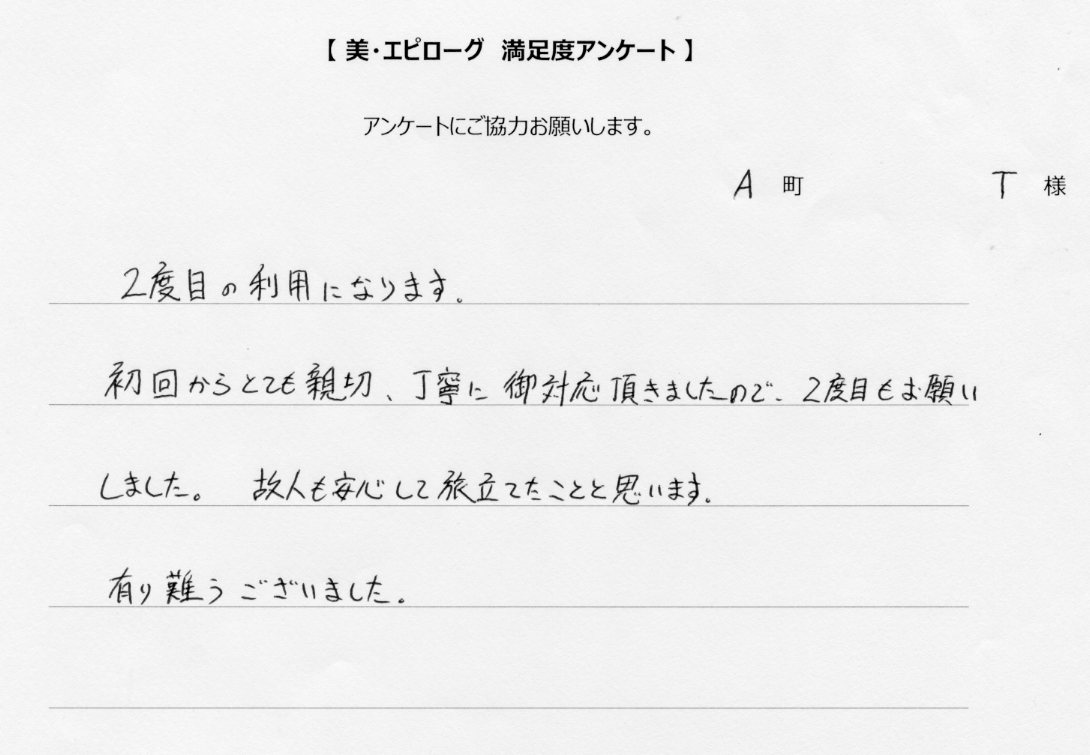 【 美・エピローグ 満足度アンケート 】
アンケートにご協力お願いします。
A 町 T 様
2度目の利用になります。
初回からとても親切、丁寧に御対応頂きましたので、2度目もお願い
しました。 故人も安心して旅立てたことと思います。
有り難うございました。